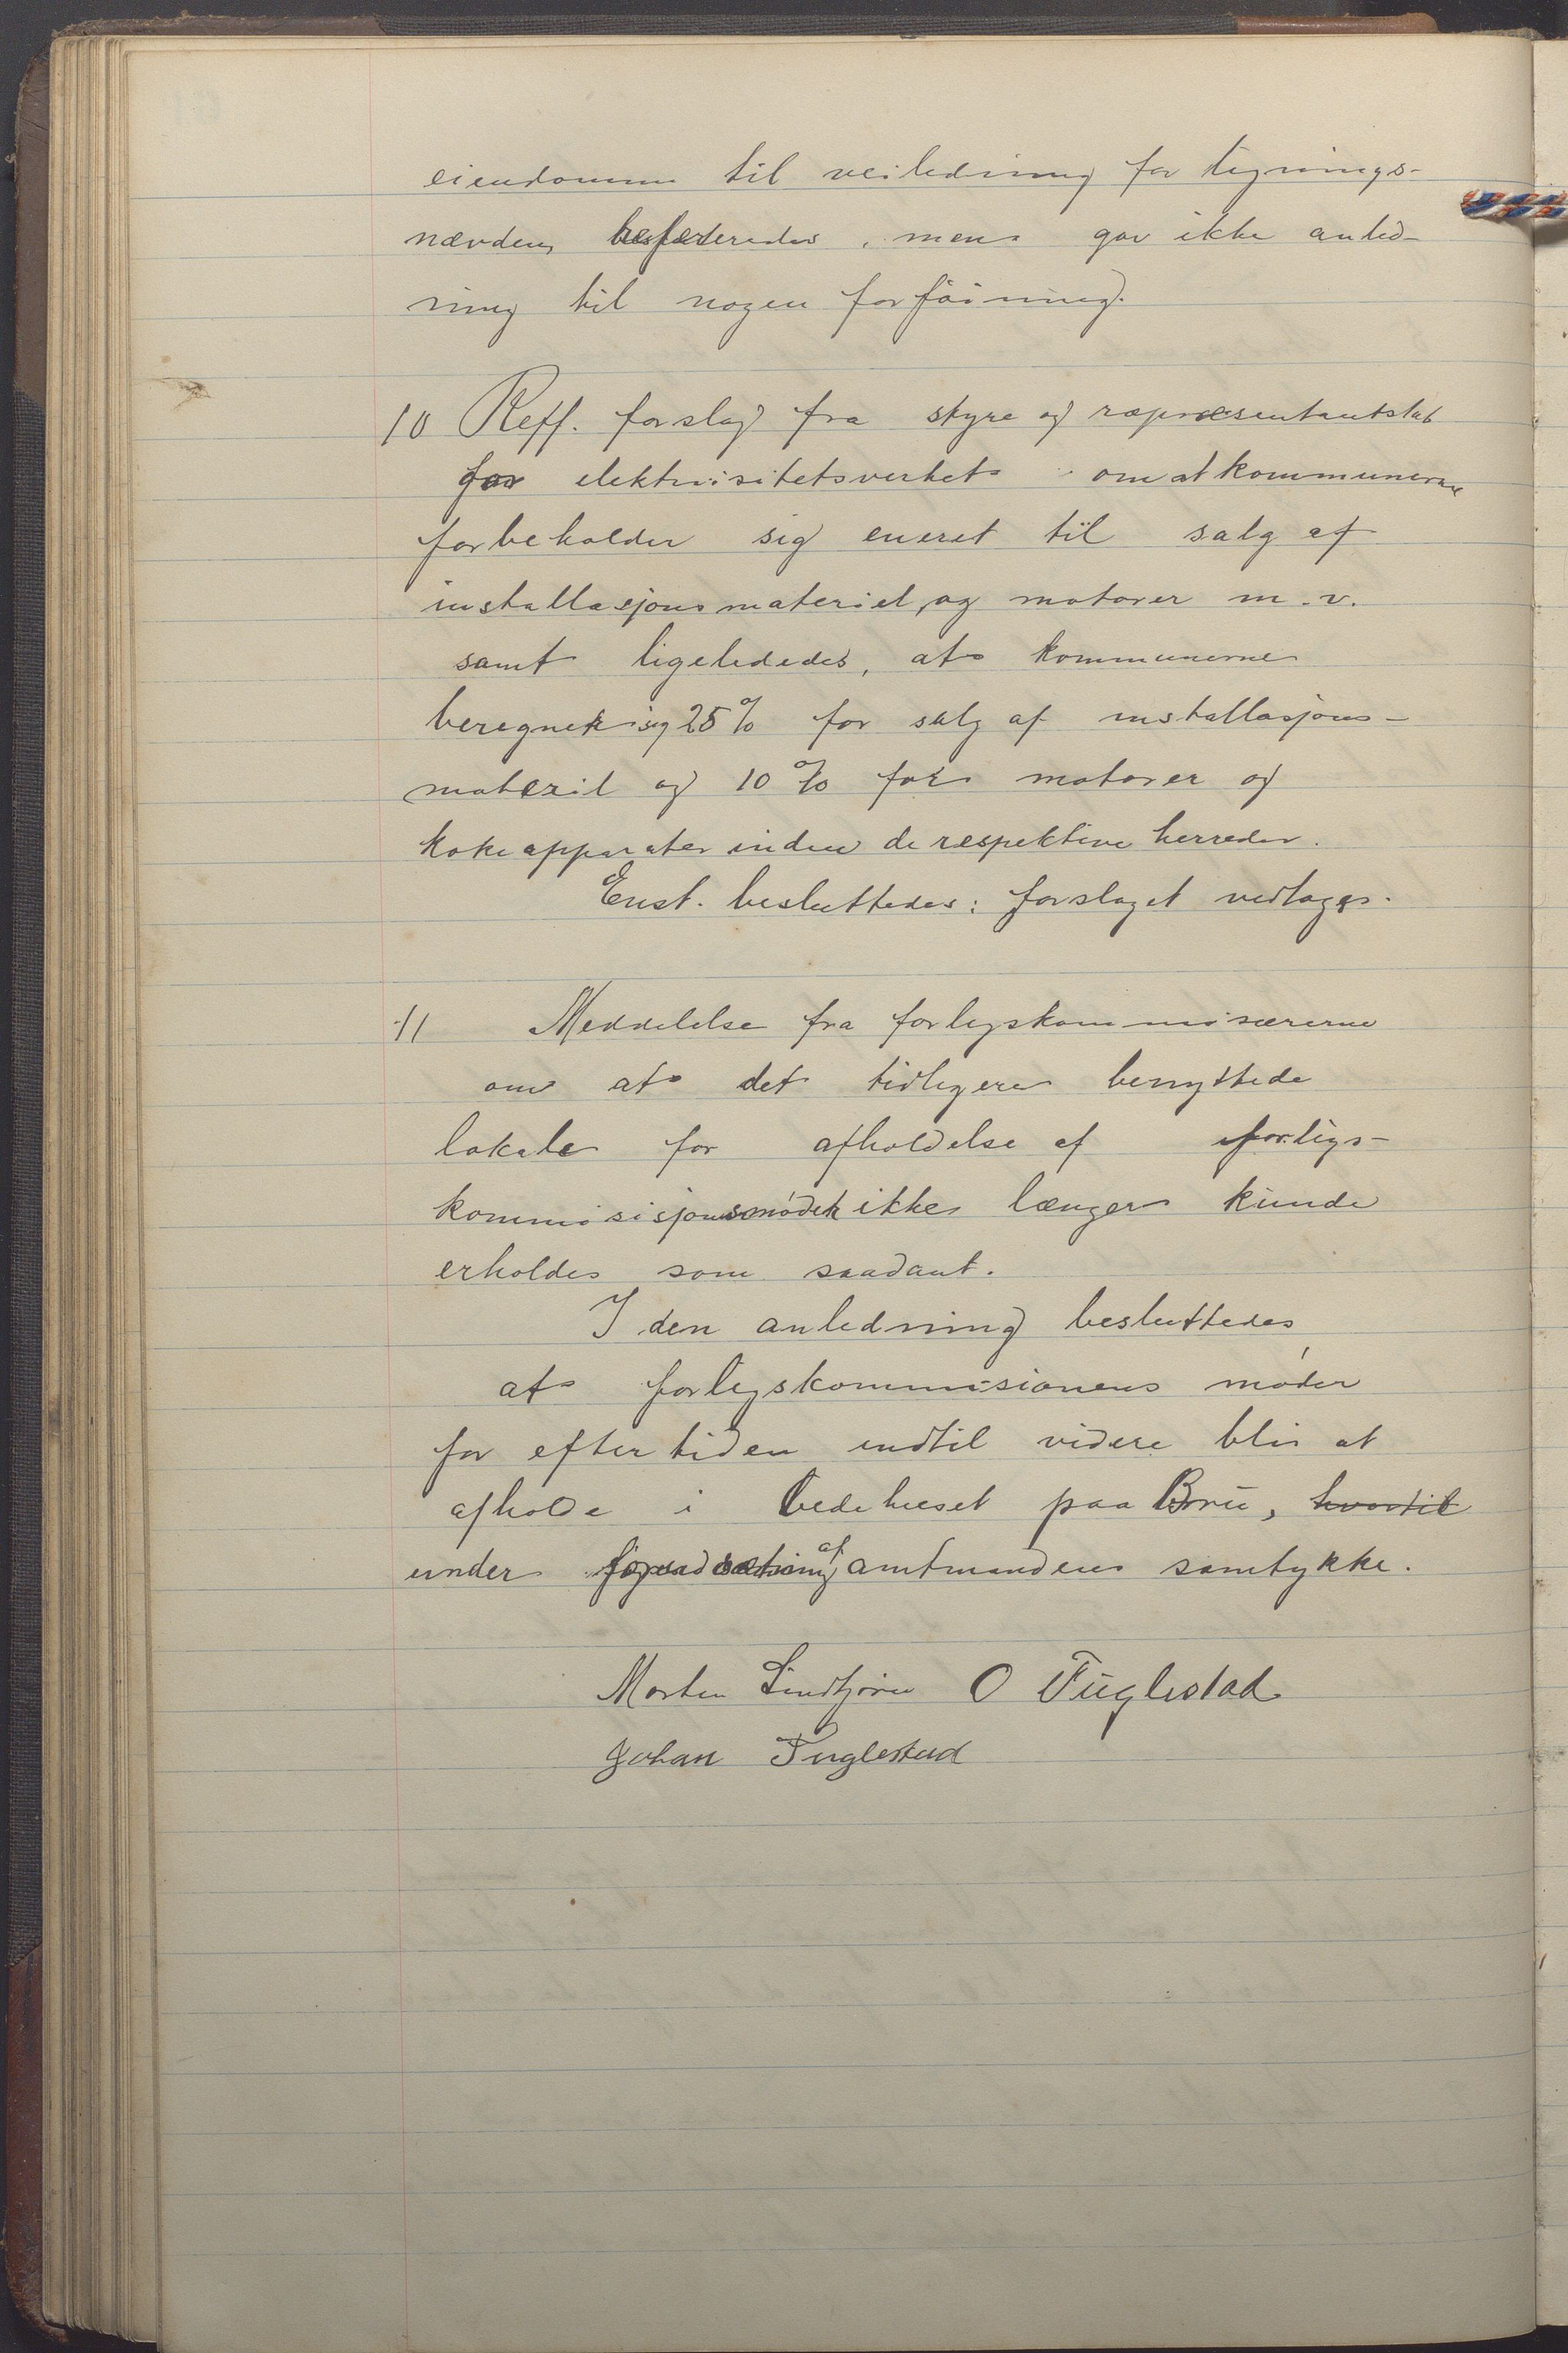 eiendomme til veiledning for lignings-
nævnden, befarteredes, men gav ikke anled-
ning til nogen forföining.
10 Reff. forslag fra styre og ræpræsentantskab
for elektrisitetsverket om at kommunerne
forbeholder sig eneret til salg af
installasjonsmateriel, og motorer m.v.
samt ligeledes, at kommunerne
beregner sig 25% for salg af installasjons-
materiel og 10% for motorer og
kokeapparater inden de respektive herreder.
Enst. besluttedes: forslaget vedtages.
11 Meddelelse fra forligskommisærerne
om at det tidligere benyttede
lokale for afholdelse af forligs-
kommisisjonsmöder ikke længer kunde
erholdes som saadant.
I den anledning besluttedes,
at forligskommisionens möder
for eftertiden indtil videre blir at
afholde i bedehuset paa Bru, hvortil
under forudsætning af amtmandens samtykke.
Morten Lindtjörn O Fuglestad
Johan Fuglestad